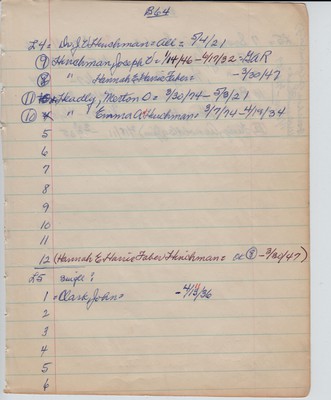 B64
L4 = Dr. J. E. Hinchman = Adi = 5/4/21
9 Hinchman, Joseph O = 1/14/46 - 4/17/32 = GAR
" Hannah E Harris Faber = - 3/30/47
11 Headly, Merton O = 3/30/74 - 5/3/21
10 " Emma A Hinchman = 3/7/74 - 4/19/34
5
6
7
8
9
10
11
12 (Hannah E Harris Faber Hinchman = 8 - 3/30/47)
L5 Single:
1 = Clark, John = - 4/13/36
2
3
4
5
6